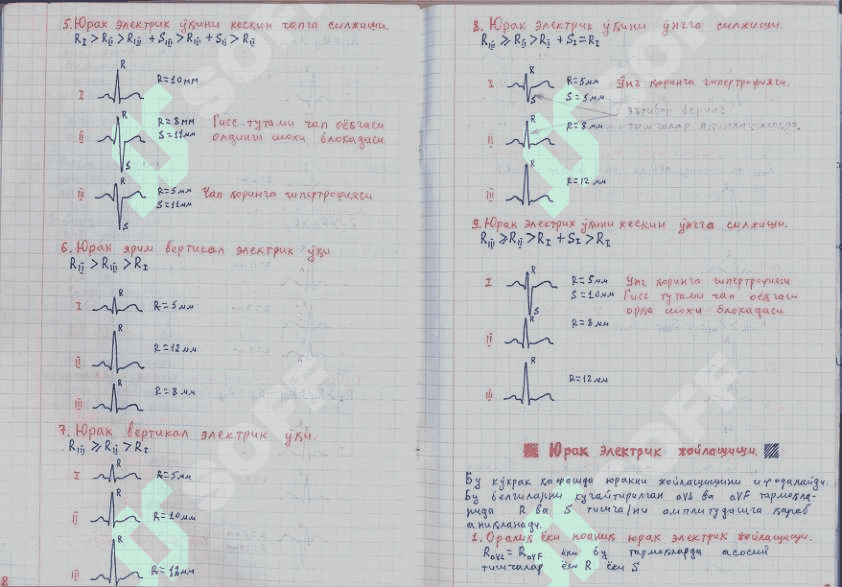 5. Юрак электрик ўқини кескин чапга силжиши.
RI > RII > RIII + SIII > RIII + SII > RII
R
I
R=10мм
R
II
R=8мм
S=11мм
Гисс тутами чап оёқчаси
олдинги шохи блокадаси
S
R
III
R=5мм
S=11мм
Чап қоринча гипертрофияси
S
6. Юрак ярим вертикал электрик ўқи
RII > RIII > RI
R
I
R=5мм
R
II
R=12мм
R
III
R=8мм
7. Юрак вертикал электрик ўқи.
RIII ⩾ RII > RI
R
I
R=5мм
R
II
R=10мм
R
III
R=12мм
8
8. Юрак электрик ўқини ўнгга силжиши.
RIII ⩾ RII > RI + SI = RI
R
I
R=5мм
S=5мм
Ўнг қоринча гипертрофияси.
S
эътибор беринг
R
II
R=8мм
тишчалар
R
III
R=12мм
9. Юрак электрик ўқини кескин ўнгга силжиши.
RIII ⩾ RII > RI + SI > RI
R
I
R=5мм
S=10мм
Ўнг қоринча гипертрофияси
Гисс тутами чап оёқчаси
орқа шохи блокадаси
S
R
II
R=8мм
R
III
R=12мм
Юрак электрик жойлашиши.
Бу кўкрак қафасида юракни жойлашишини ифодалайди.
Бу белгиларни кучайтирилган aVL ва aVF тармоқла-
рида R ва S тишча/ни амплитудасига қараб
аниқланади.
1. Оралиқ ёки ноаниқ юрак электрик жойлашиши.
RaVL = RaVF ёки бу тармоқларда асосий
тишчалар ёки R ёки S
SOFF
SOFF
SOFF
SOFF